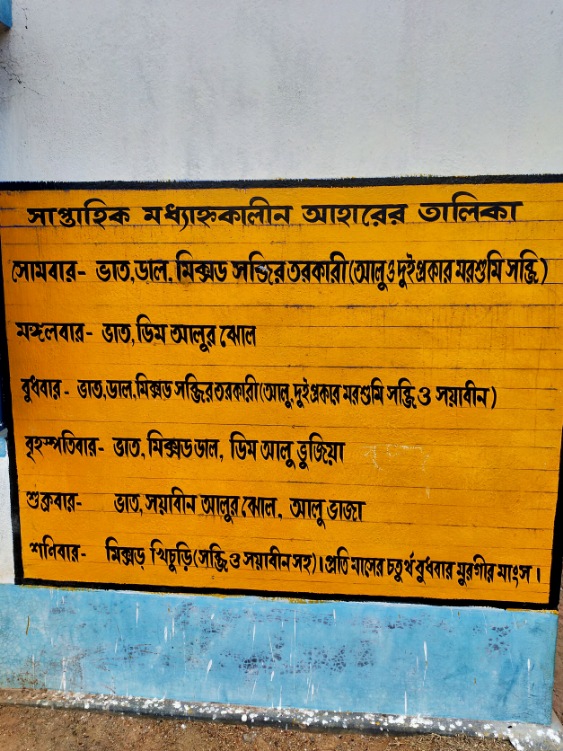 সাপ্তাহিক মধ্যাহ্নকালীন আহারের তালিকা
সোমবার- ভাত, ডাল, মিক্সড সব্জির তরকারী (আলু ও দুইপ্রকার মরশুমি সব্জি)
মঙ্গলবার- ভাত, ডিম আলুর ঝোল
বুধবার - ভাত, ডাল, মিক্সড সব্জির তরকারী (আলু, দুইপ্রকার মরশুমি সব্জি ও সয়াবীন)
বৃহস্পতিবার- ভাত, মিক্সড ডাল, ডিম আলু ভুজিয়া
শুক্রবার- ভাত, সয়াবীন আলুর ঝোল, আলু ভাজা
শনিবার- মিক্সড্ খিচুড়ি (সব্জি ও সয়াবীন সহ)। প্রতি মাসের চতুর্থ বুধবার মুরগীর মাংস।